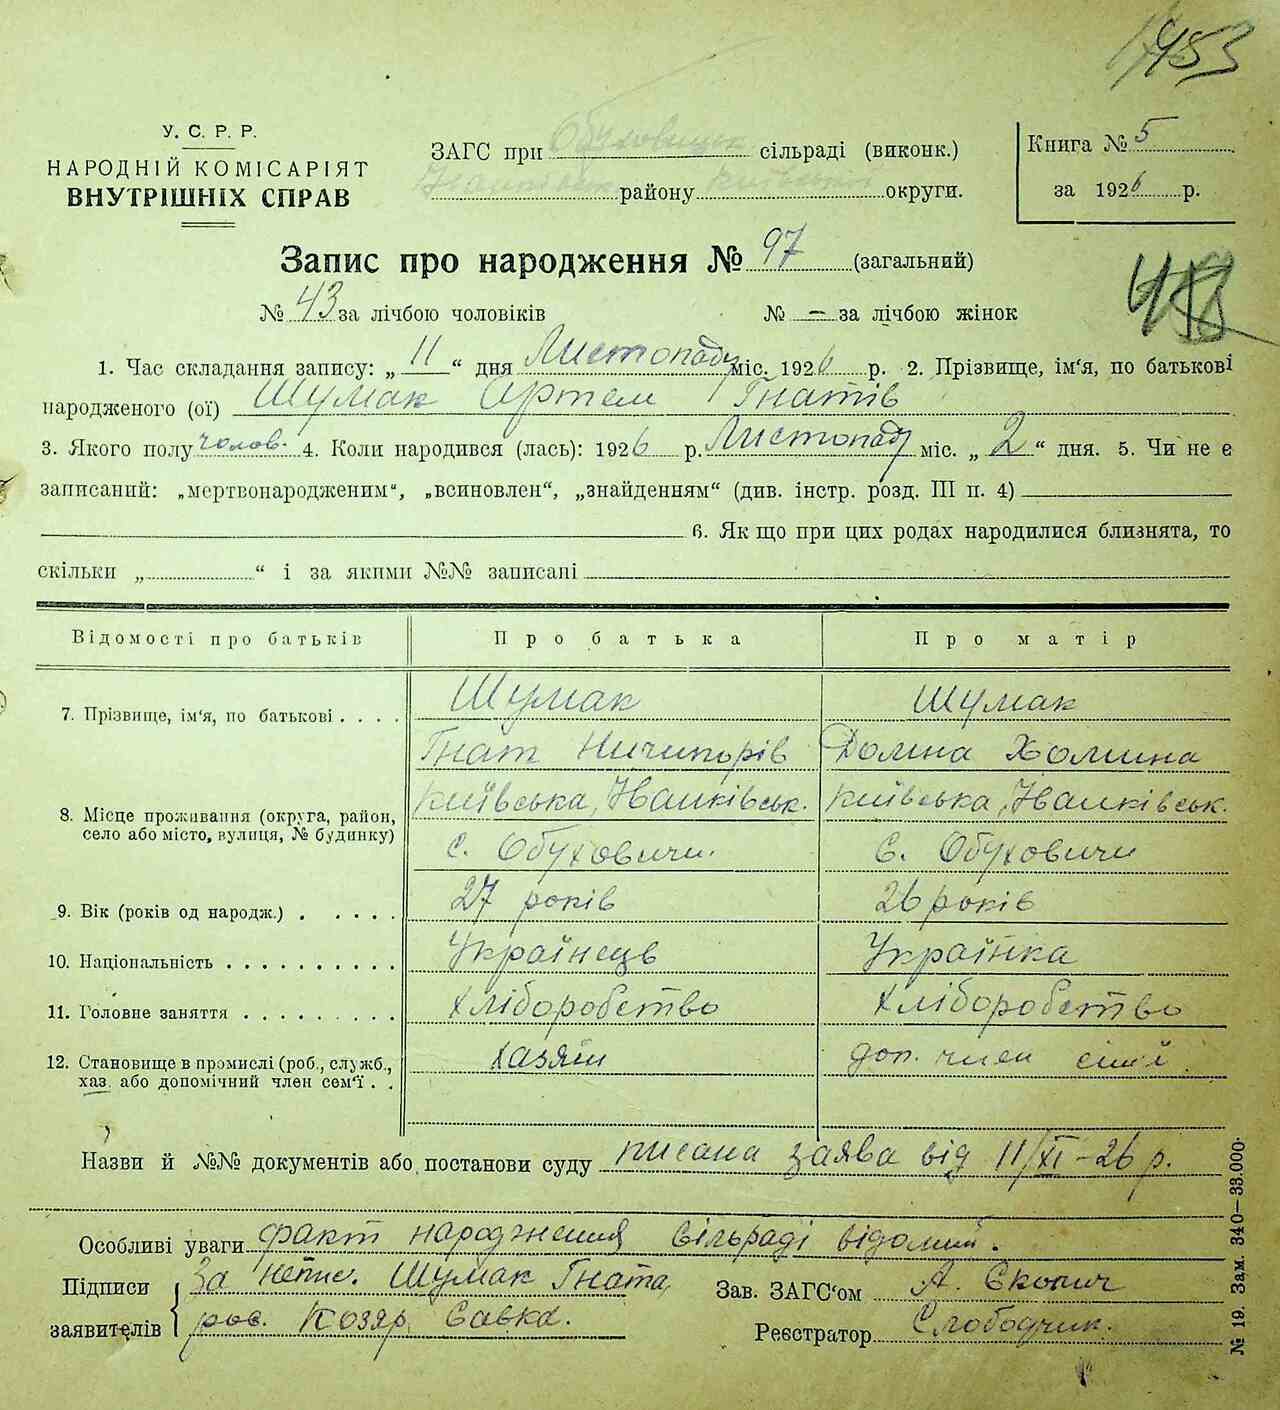 453
У. С. Р. Р.
НАРОДНІЙ КОМІСАРІЯТ
ВНУТРІШНІХ СПРАВ
ЗАГС при Обуховицьк сільраді (виконк.)
району округи.
Книга № 5
за 1926 р.
Запис про народження № 97 (загальний)
№ 43 за лічбою чоловіків № — за лічбою жінок
1. Час складання запису: „ 11 “ дня Листопаду міс. 1926 р. 2. Прізвище, ім‘я, по батькові
народженого (ої) Шумак Артем Гнатів
3. Якого полу чолов. 4. Коли народився (лась): 1926 р. Листопаду міс. „ 2 “ дня. 5. Чи не є
записаний: „мертвонародженим“, „всиновлен“, „знайденням“ (див. інстр. розд. III п. 4)
6. Як що при цих родах народилися близнята, то
скільки „ “ і за якими №№ записані
Відомості про батьків Про батька Про матір
7. Прізвище, ім‘я, по батькові . . . . Шумак Шумак
Гнат Ничипорів Доміна Хомина
8. Місце проживання (округа, район, село або місто, вулиця, № будинку) Київська, Іванківськ. Київська, Іванківськ.
с. Обуховичи. с. Обуховичи
9. Вік (років од народж.) . . . . . . 27 років 26 років
10. Національність . . . . . . . . . . Українець Українка
11. Головне заняття . . . . . . . . . Хліборобство Хліборобство
12. Становище в промислі (роб., служб., хаз. або допомічний член сем‘ї . . хазяін доп. член сімї
Назви й №№ документів або постанови суду писана заява від 11/XI-26 р.
Особливі уваги факт народження сільраді відомий.
Підписи заявителів За непис. Шумак Гната
роз. Козяр Савка.
Зав. ЗАГС‘ом А. Скопич
Реєстратор Слободчик.
№ 19. Зам. 340—33.000.